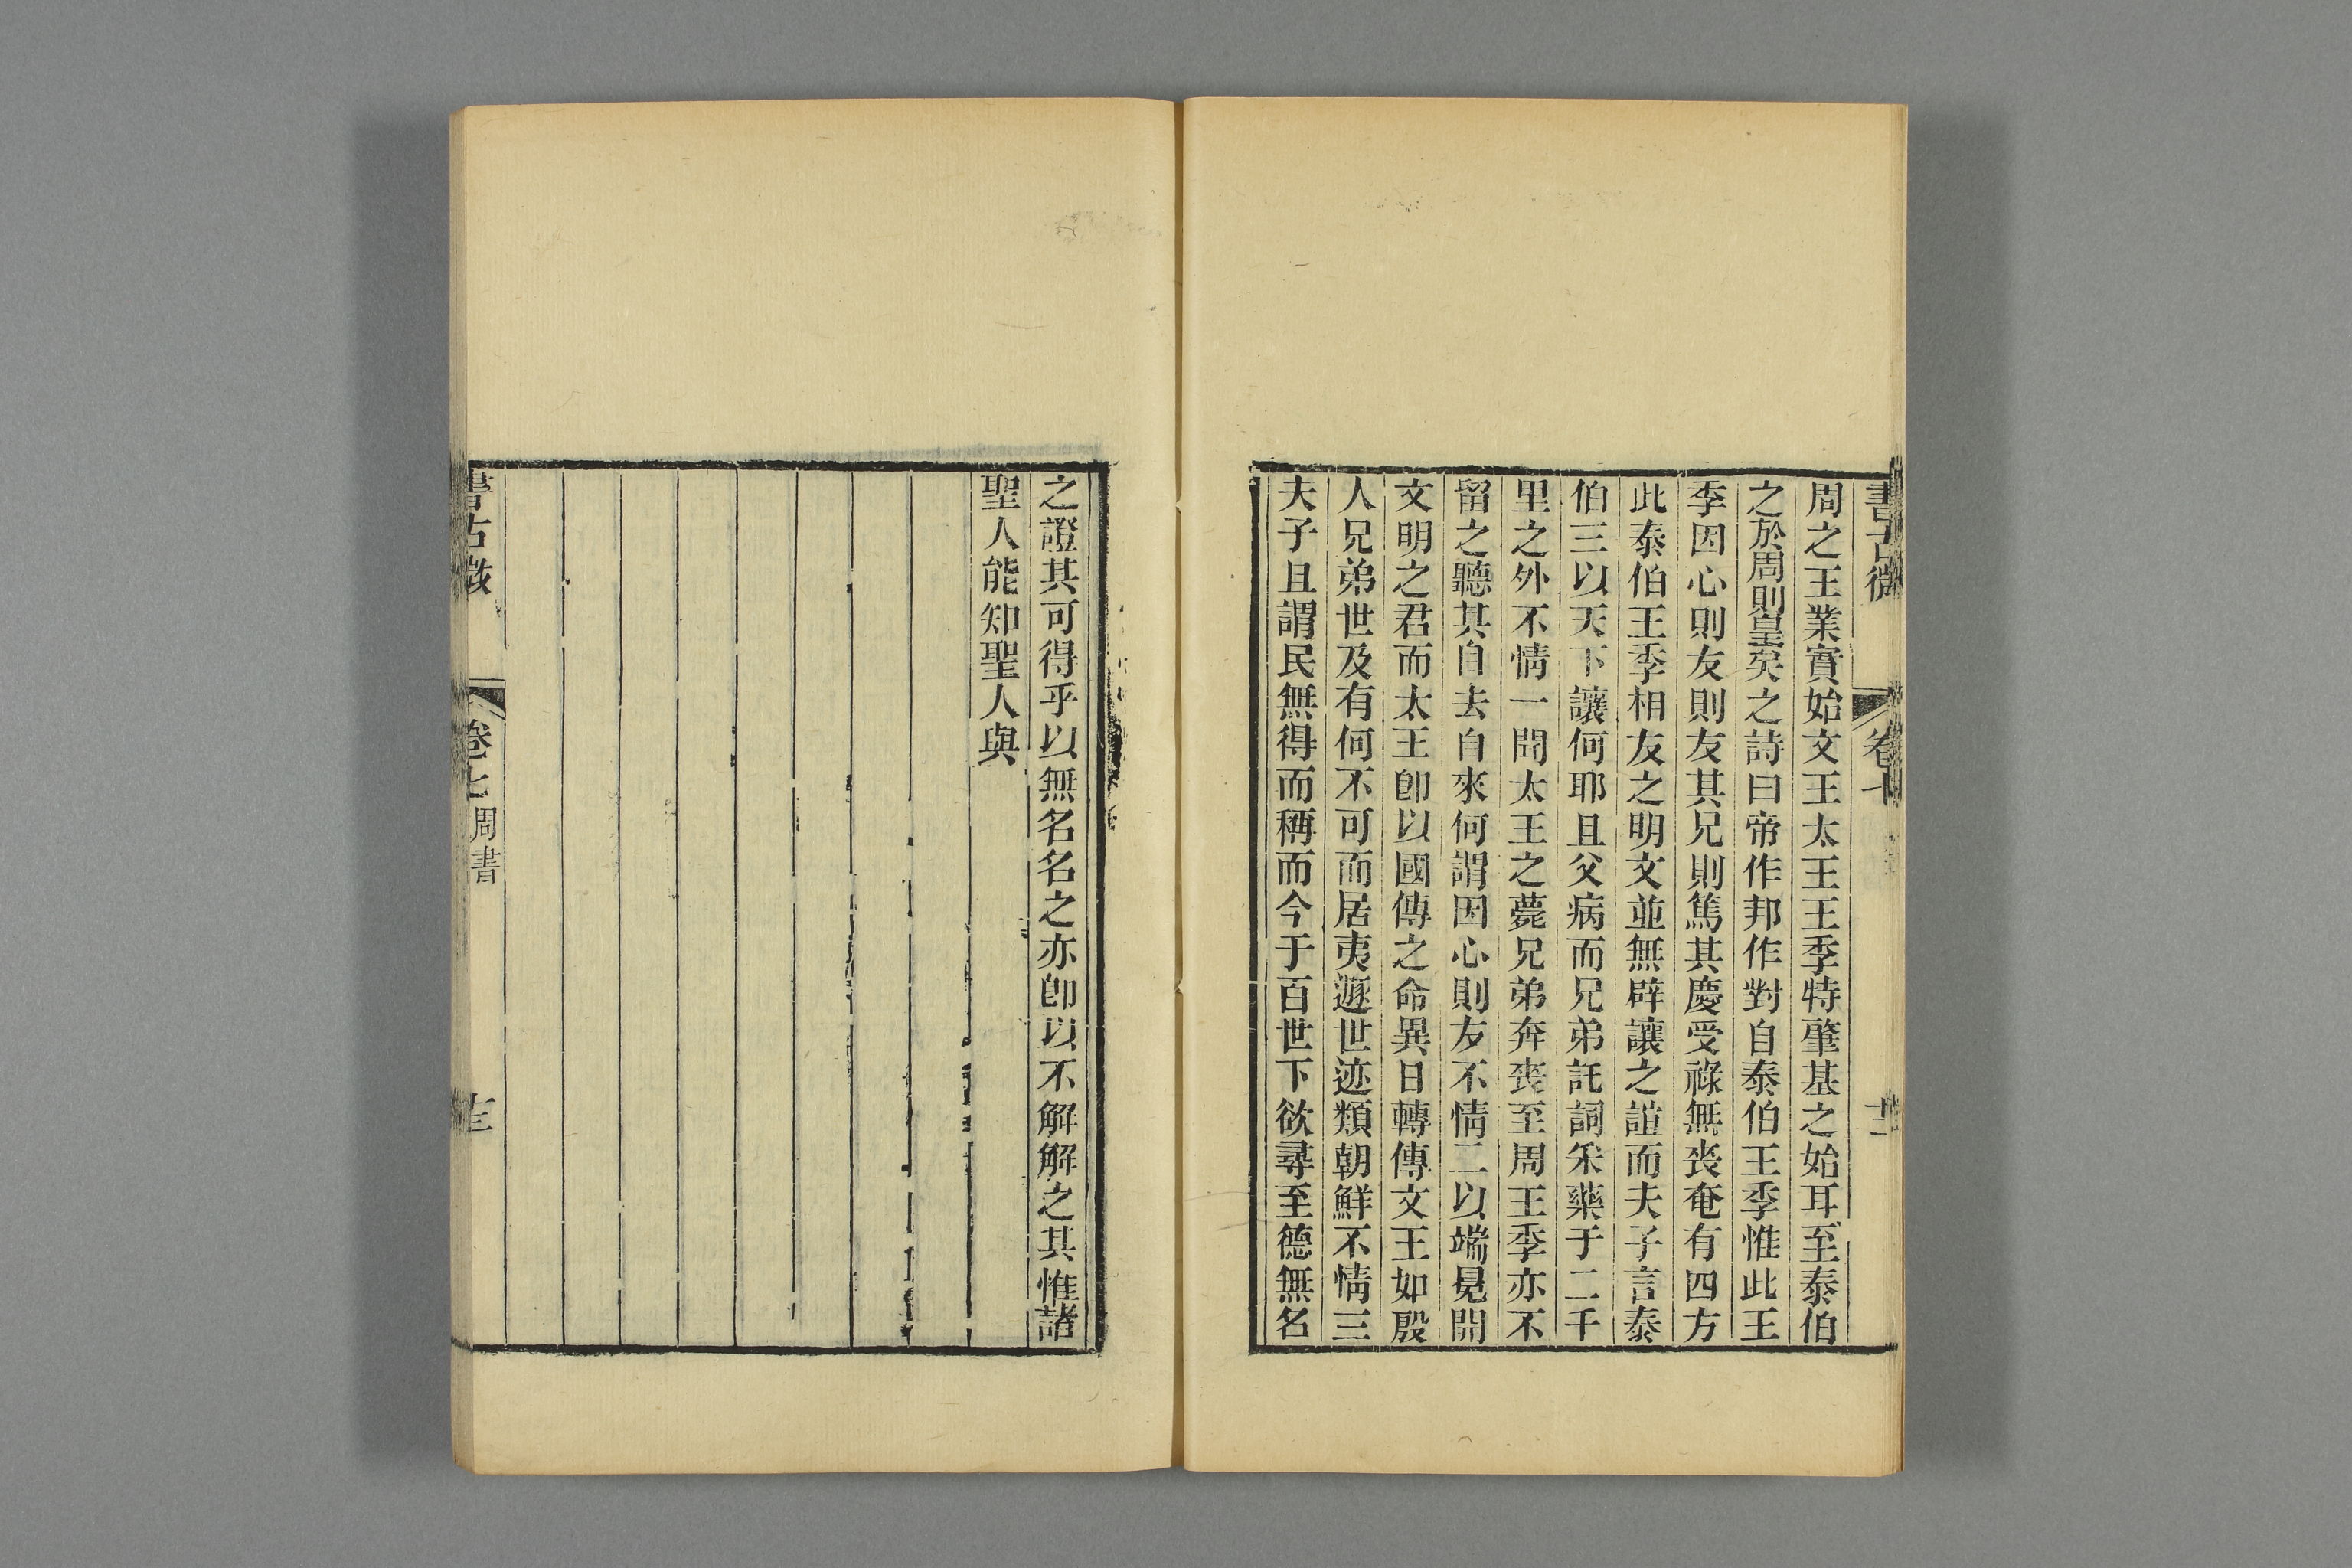 書古微
卷七
十二
周之王業實始文王太王王季特肇基之始耳至泰伯
之於周則皇矣之詩曰帝作邦作對自泰伯王季惟此王
季因心則友則友其兄則篤其慶受祿無喪奄有四方
此泰伯王季相友之明文並無辟讓之誼而夫子言泰
伯三以天下讓何耶且父病而兄弟託詞采藥于二千
里之外不情一問太王之薨兄弟奔喪至周王季亦不
留之聽其自去自來何謂因心則友不情二以端冕開
文明之君而太王卽以國傳之命異日轉傳文王如殷
人兄弟世及有何不可而居夷遯世迹類朝鮮不情三
夫子且謂民無得而稱而今于百世下欲尋至德無名
之證其可得乎以無名名之亦卽以不解解之其惟諸
聖人能知聖人與
書古微
卷七
周書
十三